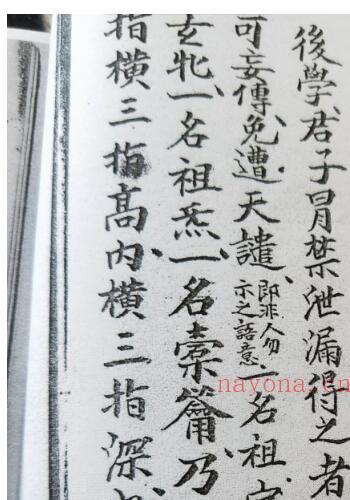 後學君子冒禁泄漏得之者
可妄傳免遭天譴即非人勿示之語意一名祖
玄牝一名祖炁一名橐籥乃
指橫三指高內橫三指深
nayona.cn